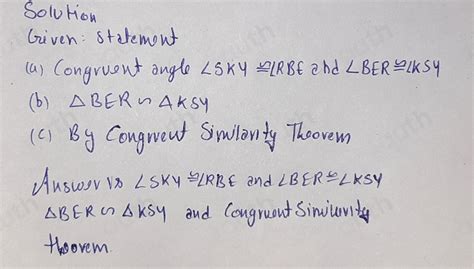 Solution
Given: Statement
(a) Congruent angle ∠SKY ≅∠RBE and ∠BER≅∠KSY
(b) △BER ∽ △KSY
(c) By Congruent Similarity Theorem
Answer is ∠SKY ≅∠RBE and ∠BER≅∠KSY
△BER ∽ △KSY and Congruent Similarity
theorem.